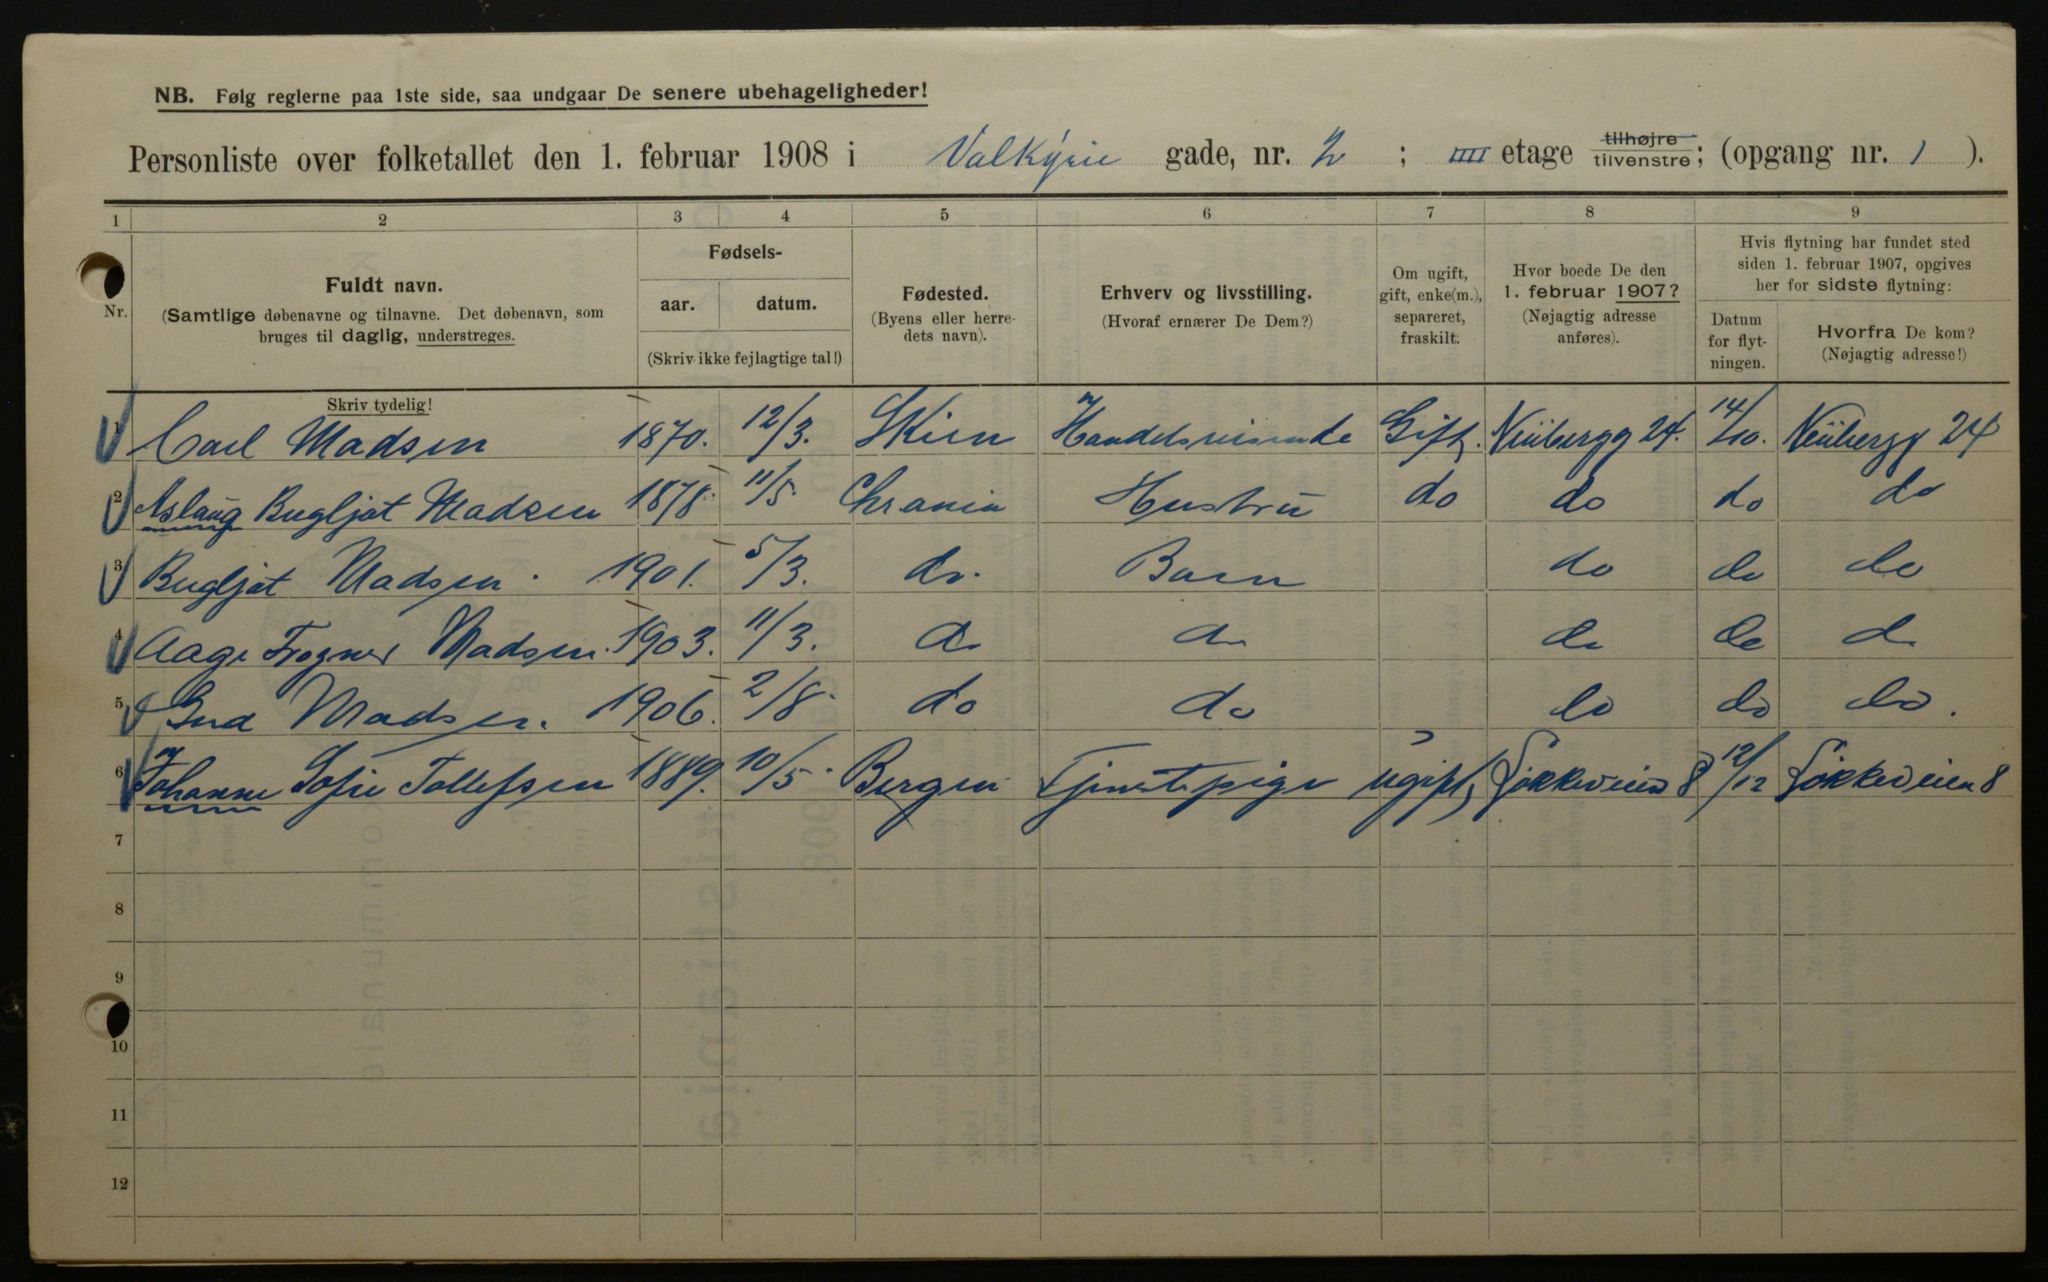 NB. Følg reglerne paa 1ste side, saa undgaar De senere ubehageligheder!
Personliste over folketallet den 1. februar 1908 i Valkyrie gade, nr. 2 ; IIII etage tilhøjre tilvenstre; (opgang nr. 1 ).
1 2 3 4 5 6 7 8 9
Nr. Fuldt navn. (Samtlige døbenavne og tilnavne. Det døbenavn, som bruges til daglig, understreges. Skriv tydelig!
Fødsels- aar. datum. (Skriv ikke fejlagtige tal!)
Fødested. (Byens eller herredets navn).
Erhverv og livsstilling. (Hvoraf ernærer De Dem?)
Om ugift, gift, enke(m.), separeret, fraskilt.
Hvor boede De den 1. februar 1907? (Nøjagtig adresse anføres).
Hvis flytning har fundet sted siden 1. februar 1907, opgives her for sidste flytning:
Datum for flytningen.
Hvorfra De kom? (Nøjagtig adresse!)
1 Carl Madsen 1870. 12/3. Skien Handelsreisende Gift. Neübergg 24. 14/10. Neübergg 24
2 Aslaug Bergljot Madsen 1878. 11/5. Chrania Hustru do do do do
3 Bergljot Madsen. 1901. 5/3. do. Barn do do do
4 Aage Frogner Madsen. 1903. 11/3. do do do do do
5 Gerd Madsen. 1906. 2/8. do do do do do.
6 Johanne Sofie Tollefsen 1889. 10/5. Bergen Tjenestepige ugift, Løkkeveien 8 12/12 Løkkeveien 8
7
8
9
10
11
12